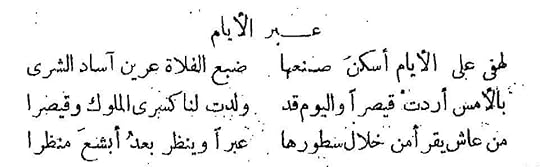 عبر الأيام
لهفى على الأيام أسكنَ صنعها ضبع الفلاة عرين آساد الشرى
بالأمس أردتْ قيصراً واليوم قد ولدت لنا كسرى الملوك وقيصرا
من عاش يقرأ من خلال سطورها عبراً وينظر بعدُ أبشعَ منظرا